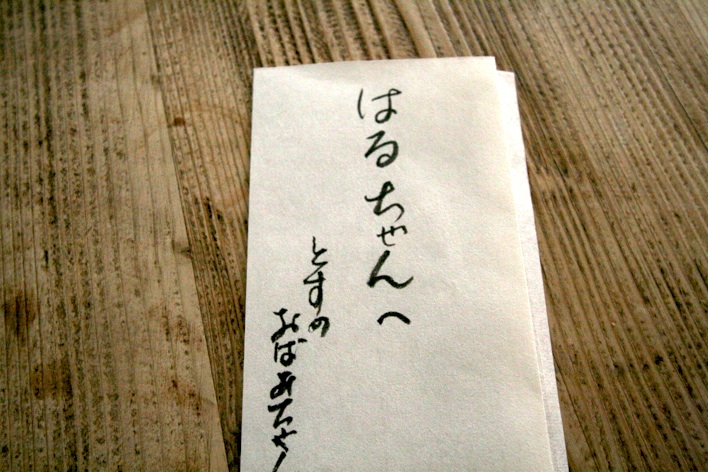 はるちゃんへ
とすの
おばあちゃん